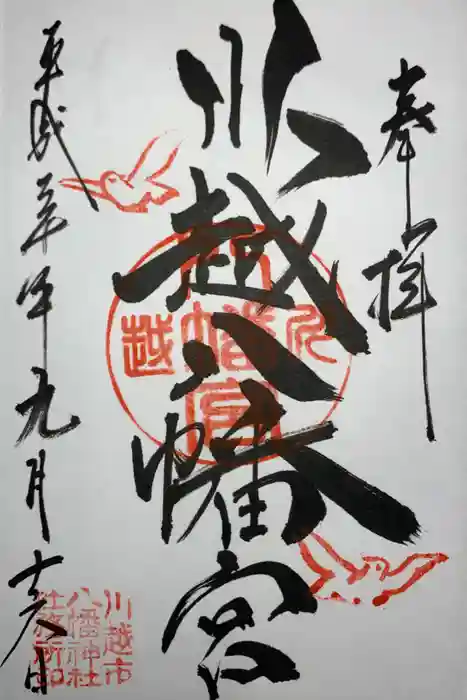 奉拝
川越八幡宮
川越
八幡宮
平成三十年九月十六日
川越市
八幡神社
社務所印